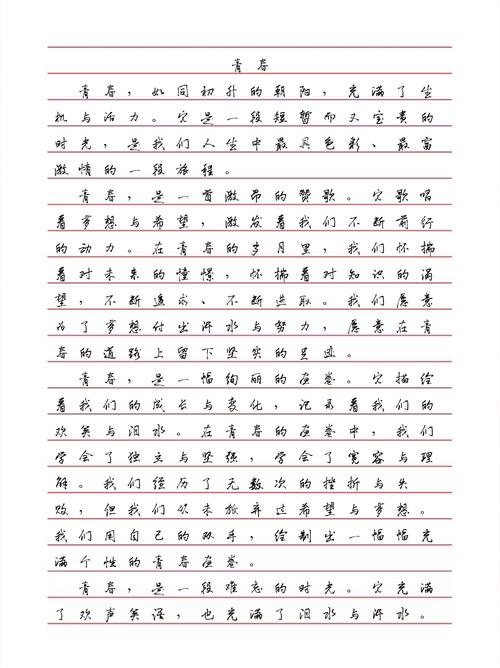 青春
青春，如同初升的朝阳，充满了生
机与活力。它是一段短暂而又宝贵的
时光，是我们人生中最具色彩、最富
激情的一段旅程。
青春，是一首激昂的赞歌。它歌唱
着梦想与希望，激发着我们不断前行
的动力。在青春的岁月里，我们怀揣
着对未来的憧憬，怀揣着对知识的渴
望，不断追求、不断进取。我们愿意
为了梦想付出汗水与努力，愿意在青
春的道路上留下坚实的足迹。
青春，是一幅绚丽的画卷。它描绘
着我们的成长与变化，记录着我们的
欢笑与泪水。在青春的画卷中，我们
学会了独立与坚强，学会了宽容与理
解。我们经历了无数次的挫折与失
败，但我们从未放弃过希望与梦想。
我们用自己的双手，绘制出一幅幅充
满个性的青春画卷。
青春，是一段难忘的时光。它充满
了欢声笑语，也充满了泪水与汗水。